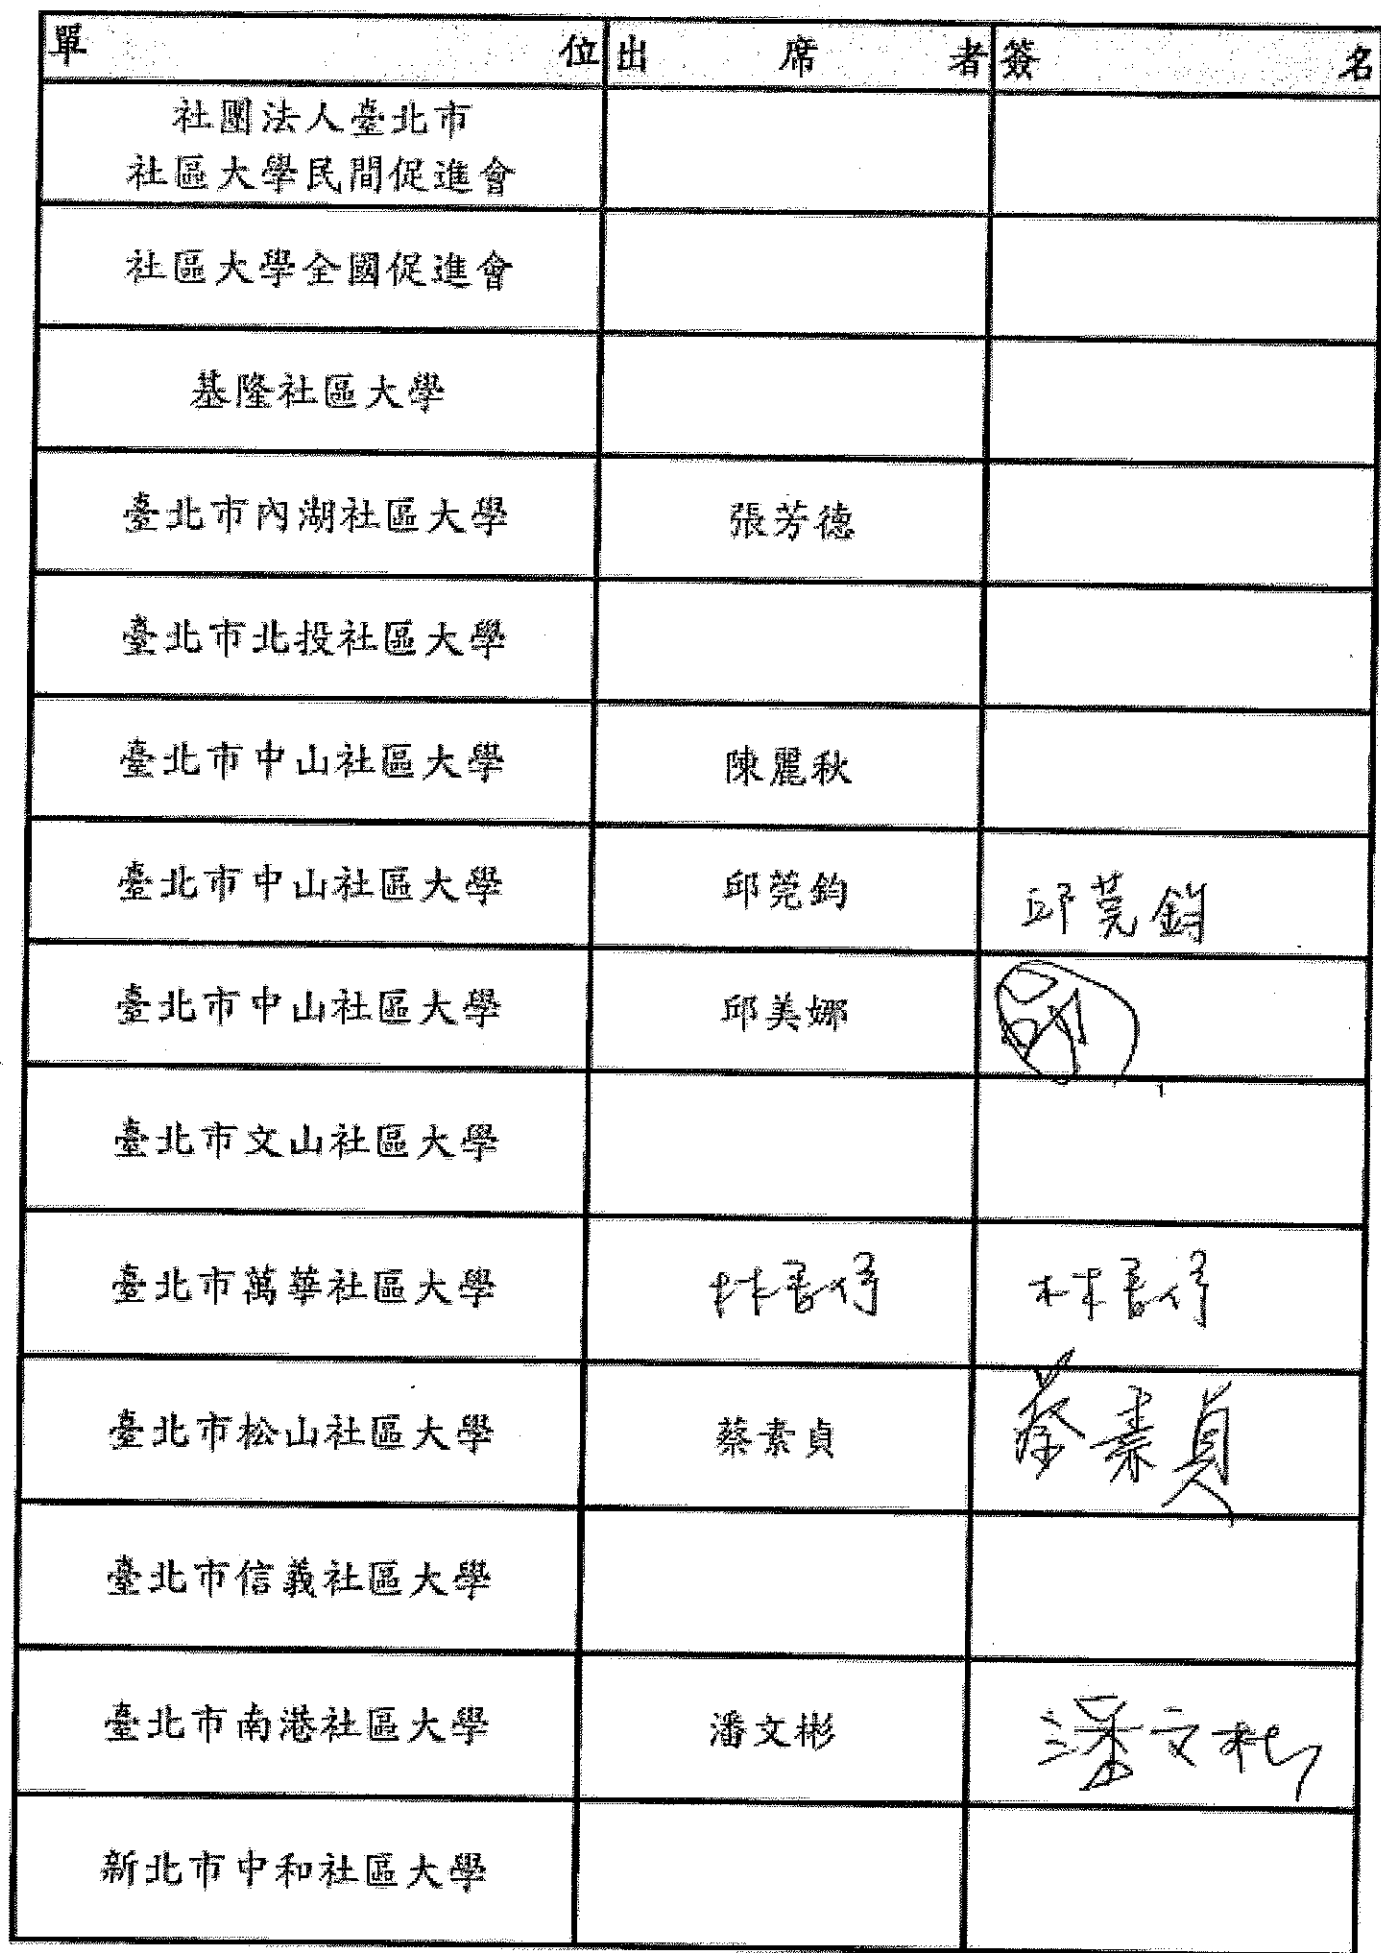 單位 出席者 簽名
社團法人臺北市
社區大學民間促進會
社區大學全國促進會
基隆社區大學
臺北市內湖社區大學 張芳德
臺北市北投社區大學
臺北市中山社區大學 陳麗秋
臺北市中山社區大學 邱莞鈞 邱莞鈞
臺北市中山社區大學 邱美娜
臺北市文山社區大學
臺北市萬華社區大學 林 林
臺北市松山社區大學 蔡素貞 蔡素貞
臺北市信義社區大學
臺北市南港社區大學 潘文彬 潘文彬
新北市中和社區大學